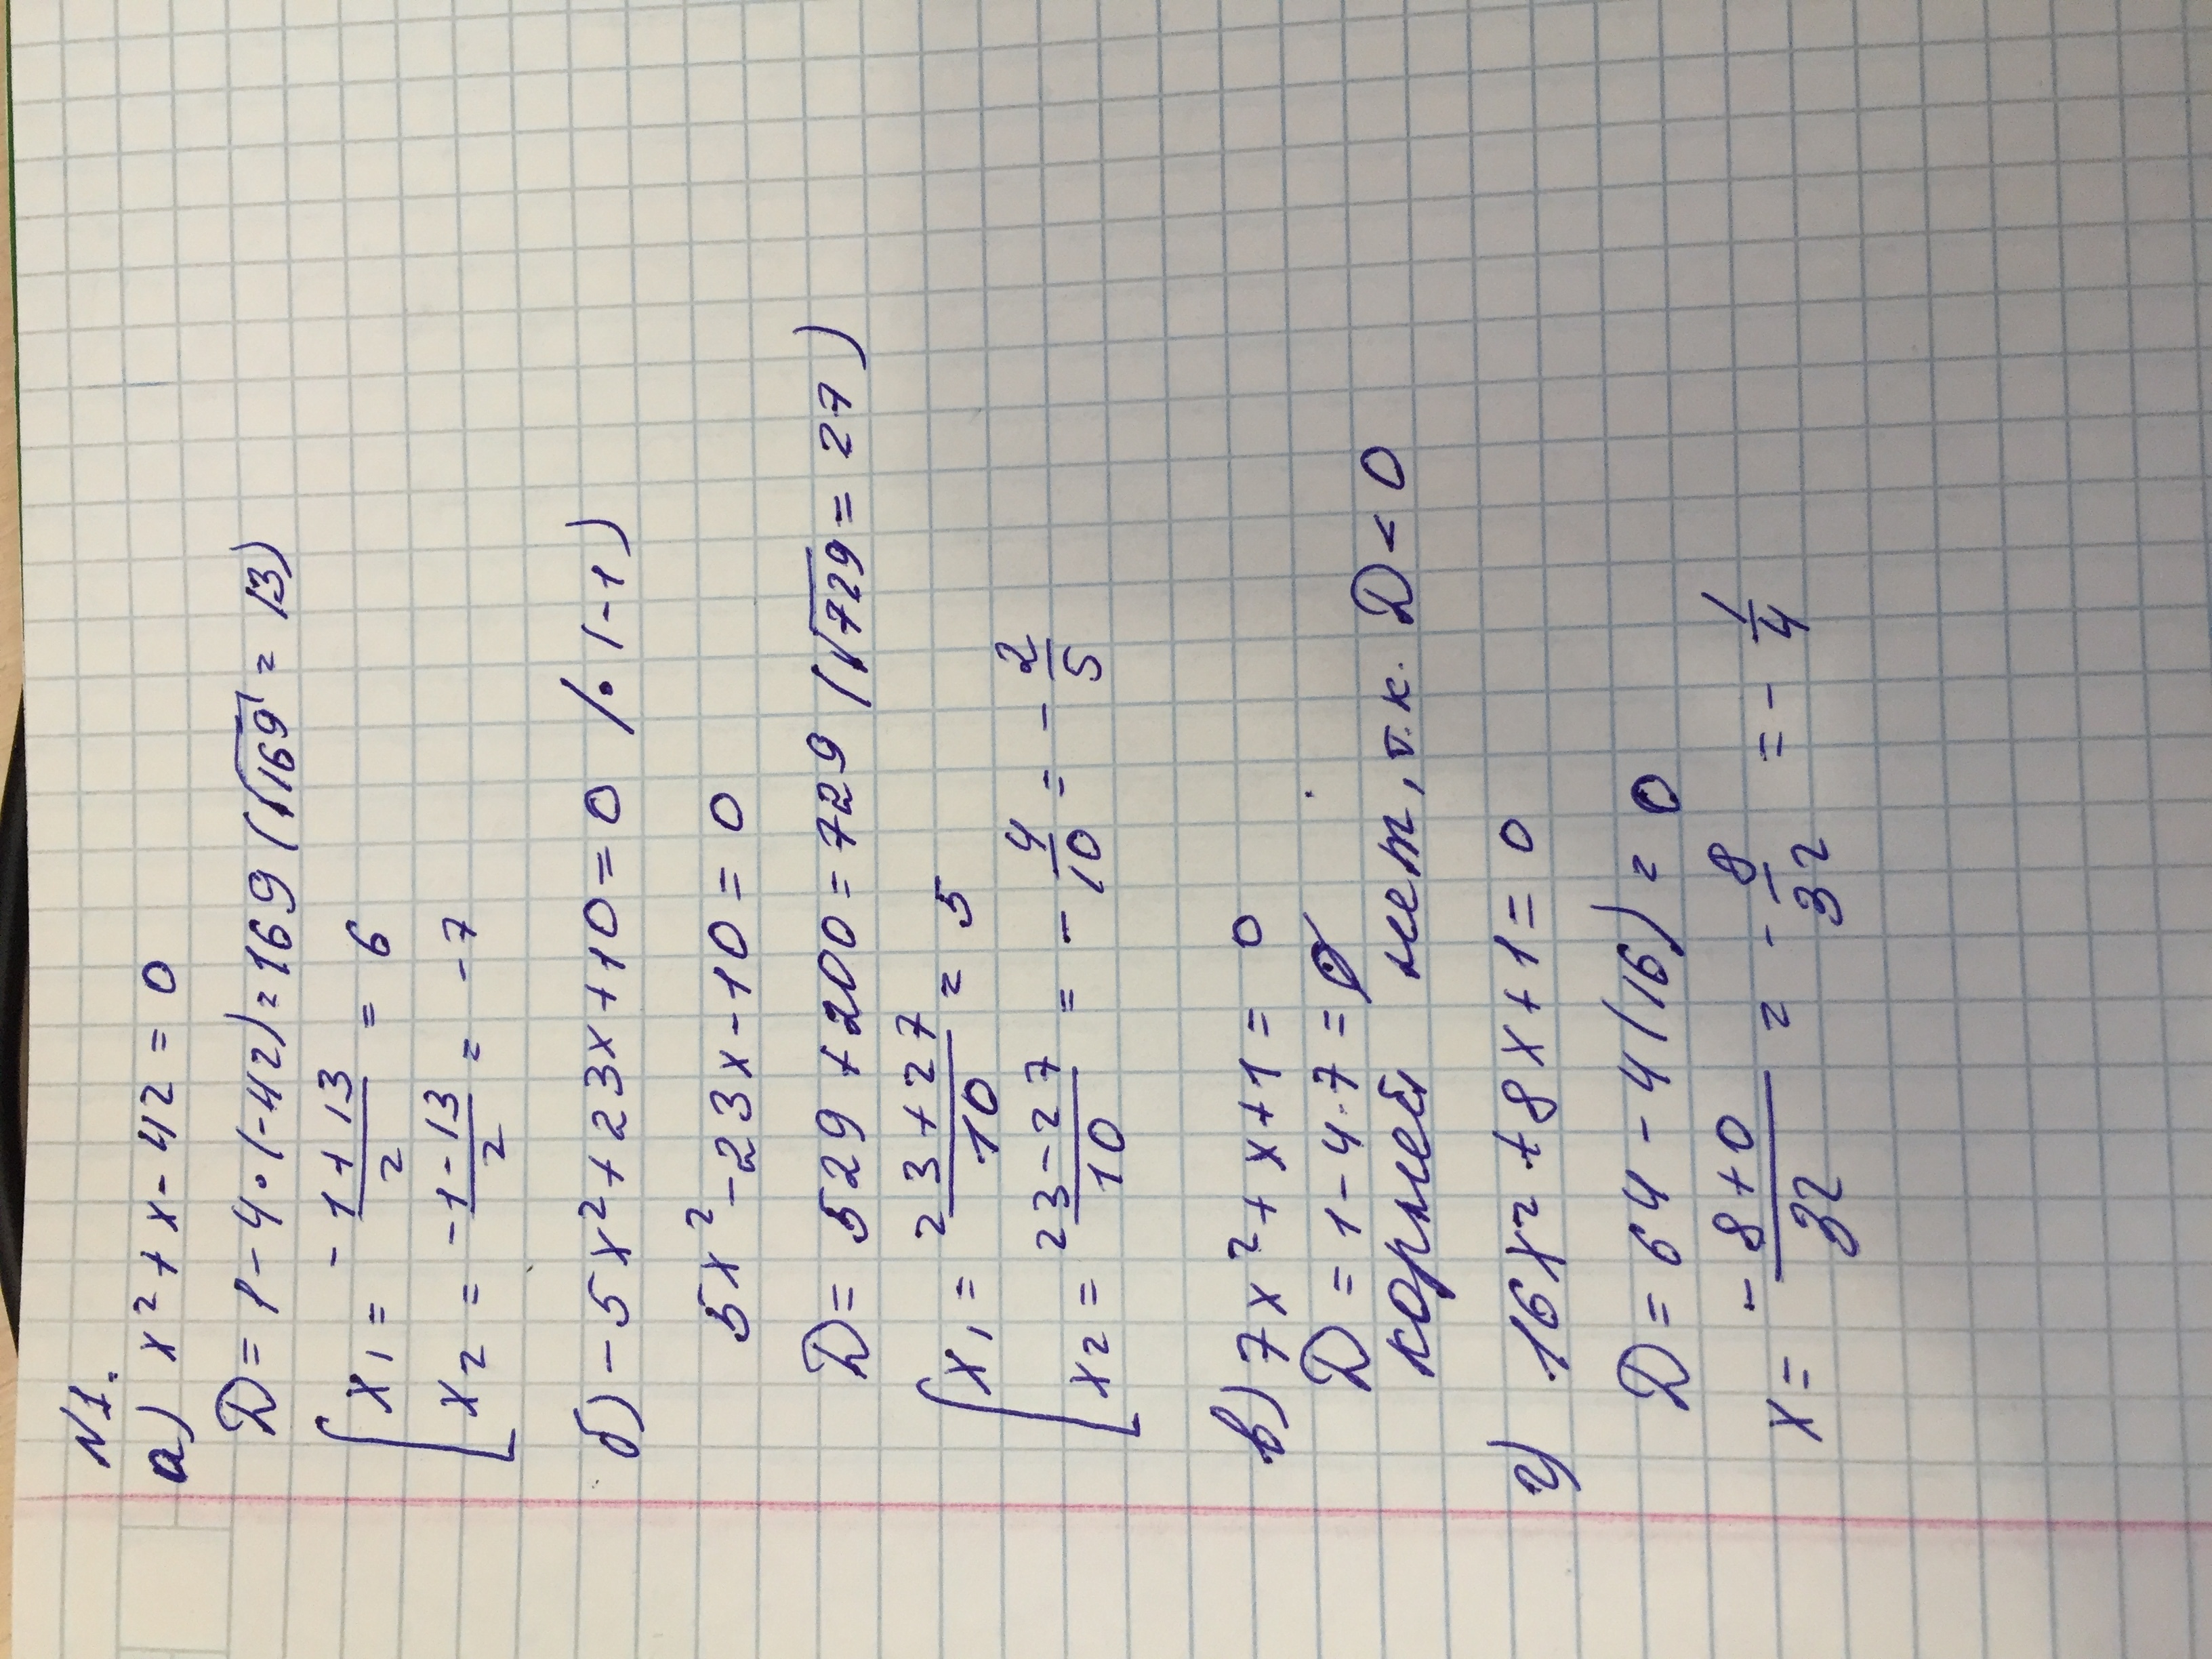 N1.
а) x² + x - 42 = 0
D = 1 - 4 · (-42) = 169 (√169 = 13)
x₁ = (-1 + 13)/2 = 6
x₂ = (-1 - 13)/2 = -7
б) -5x² + 23x + 10 = 0 /· (-1)
5x² - 23x - 10 = 0
D = 529 + 200 = 729 (√729 = 27)
x₁ = (23 + 27)/10 = 5
x₂ = (23 - 27)/10 = -4/10 = -2/5
в) 7x² + x + 1 = 0
D = 1 - 4 · 7 = ∅
корней нет, т.к. D < 0
г) 16x² + 8x + 1 = 0
D = 64 - 4(16) = 0
x = (-8 + 0)/32 = -8/32 = -1/4